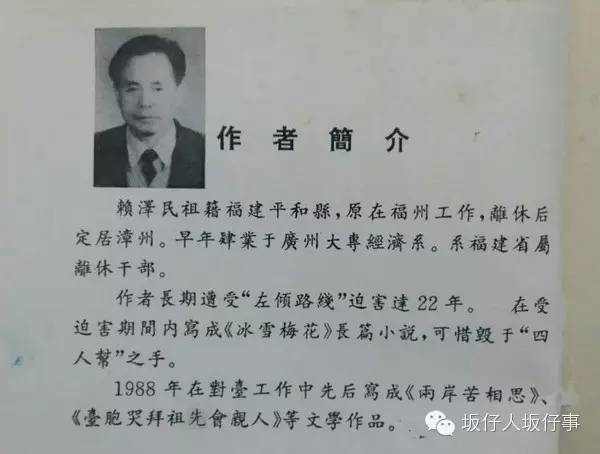 作者簡介
賴澤民祖籍福建平和縣，原在福州工作，離休后
定居漳州。早年肄業于廣州大專經濟系。系福建省屬
離休干部。
作者長期遭受“左傾路綫”迫害達22年。 在受
迫害期間内寫成《冰雪梅花》長篇小説，可惜毀于“四
人幫”之手。
1988年在對臺工作中先后寫成《兩岸苦相思》、
《臺胞哭拜祖先會親人》等文學作品。
坂仔人坂仔事